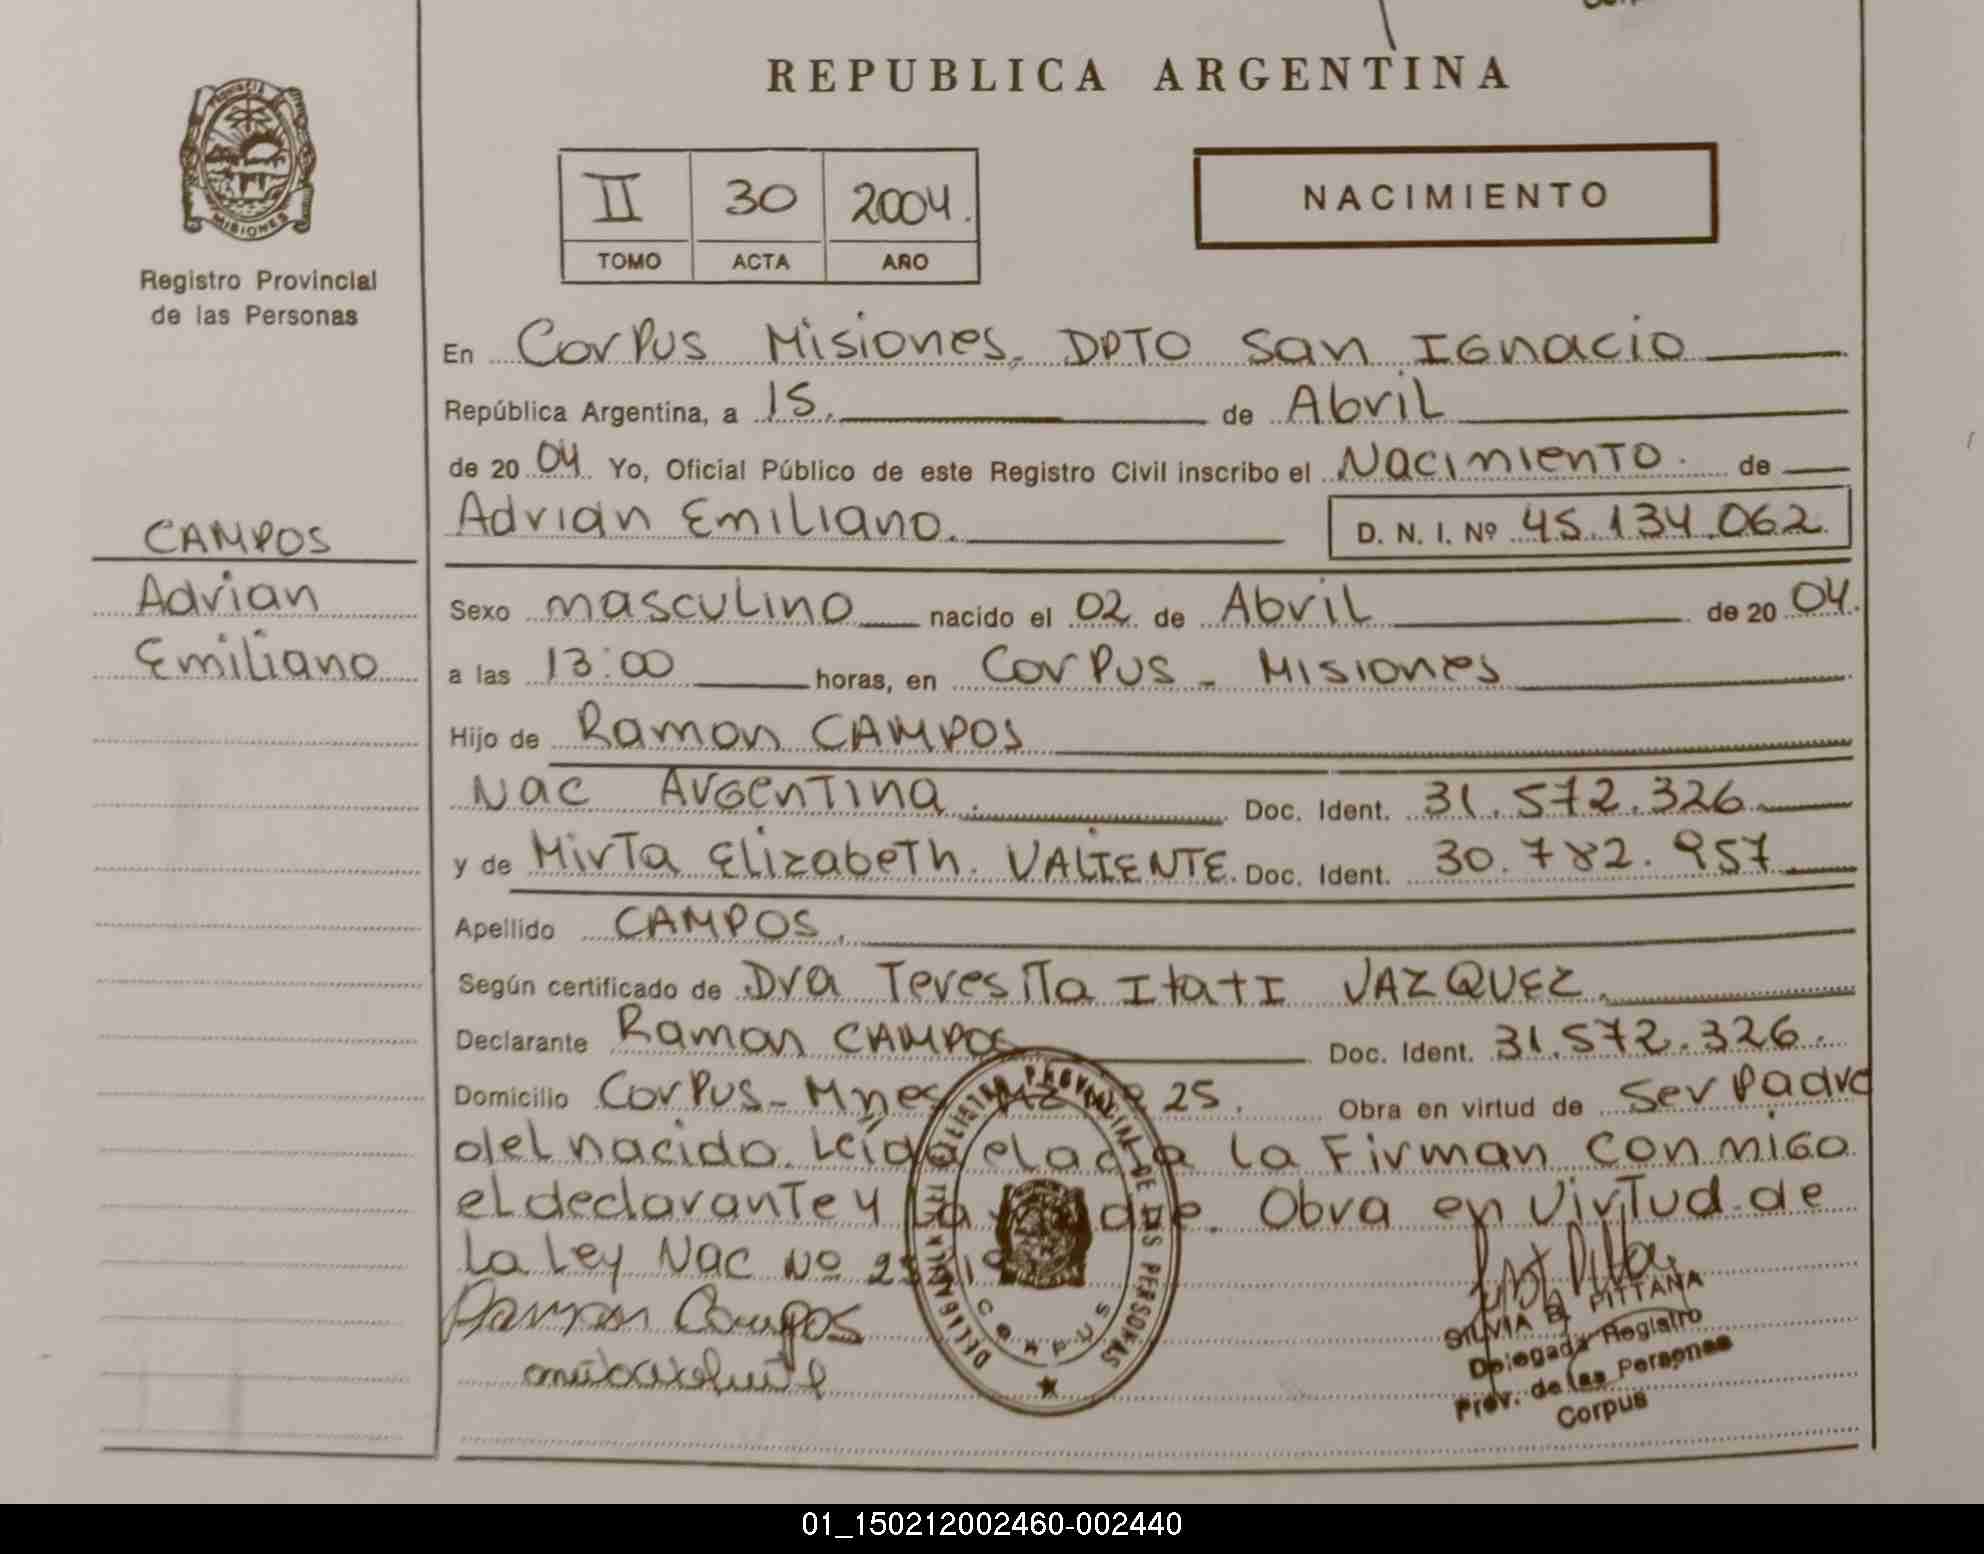 REPUBLICA ARGENTINA
PROVINCIA DE MISIONES
Registro Provincial
de las Personas
II 30 2004.
TOMO ACTA AÑO
NACIMIENTO
CAMPOS
Adrian
Emiliano
En Corpus Misiones. DPTO San Ignacio
República Argentina, a 15. de Abril
de 20 04 Yo, Oficial Público de este Registro Civil inscribo el Nacimiento. de
Adrian Emiliano. D. N. I. Nº 45.134.062.
Sexo masculino nacido el 02 de Abril de 20 04.
a las 13:00 horas, en Corpus - Misiones
Hijo de Ramon CAMPOS
Nac Argentina. Doc. Ident. 31.572.326
y de Mirta Elizabeth. VALIENTE. Doc. Ident. 30.782.957
Apellido CAMPOS.
Según certificado de Dra Teresita Itati VAZQUEZ.
Declarante Ramon CAMPOS Doc. Ident. 31.572.326.
Domicilio Corpus - Mnes 25. Obra en virtud de ser Padre
del nacido. Leida el acta la Firman conmigo
el declarante y la madre. Obra en Virtud de
La Ley Nac Nº
Ramon Campos
DELEGACION REGISTRO PROVINCIAL DE LAS PERSONAS
CORPUS
SILVIA B. PITTANA
Delegada Registro
Prov. de las Personas
Corpus
01_150212002460-002440